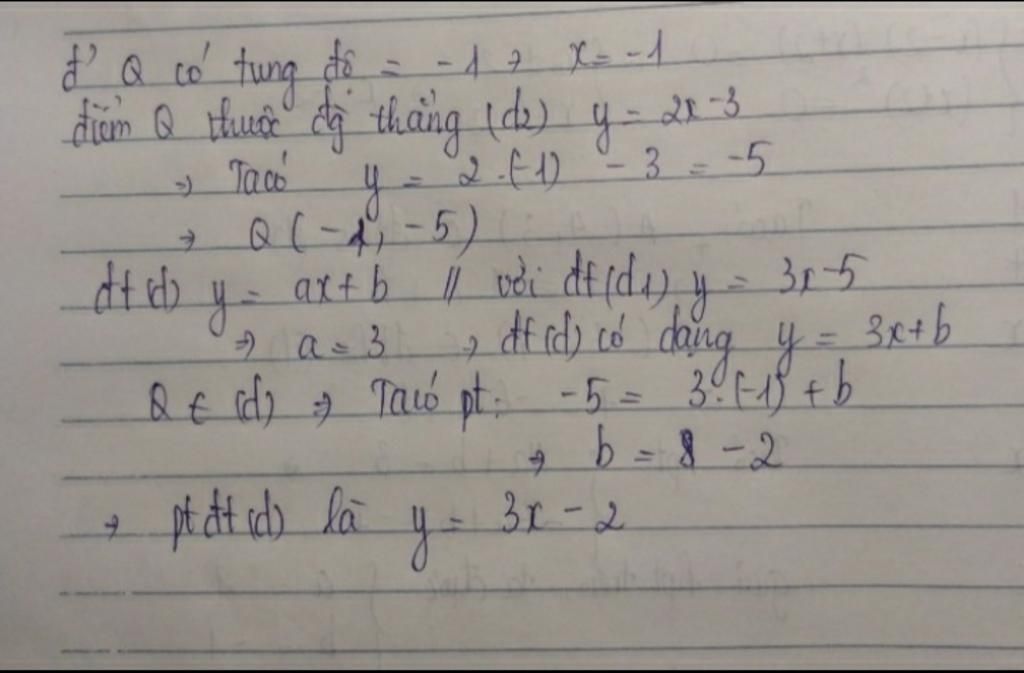 đ' Q có tung độ = -1 → x = -1
điểm Q thuộc đg thẳng (d2) y = 2x - 3
⇒ Ta có y = 2.(-1) - 3 = -5
⇒ Q(-1, -5)
đt (d) y = ax + b // với đt (d1) y = 3x - 5
⇒ a = 3 → đt (d) có dạng y = 3x + b
Q ∈ (d) ⇒ Ta có pt: -5 = 3.(-1) + b
⇒ b = - 2
→ pt đt (d) là y = 3x - 2